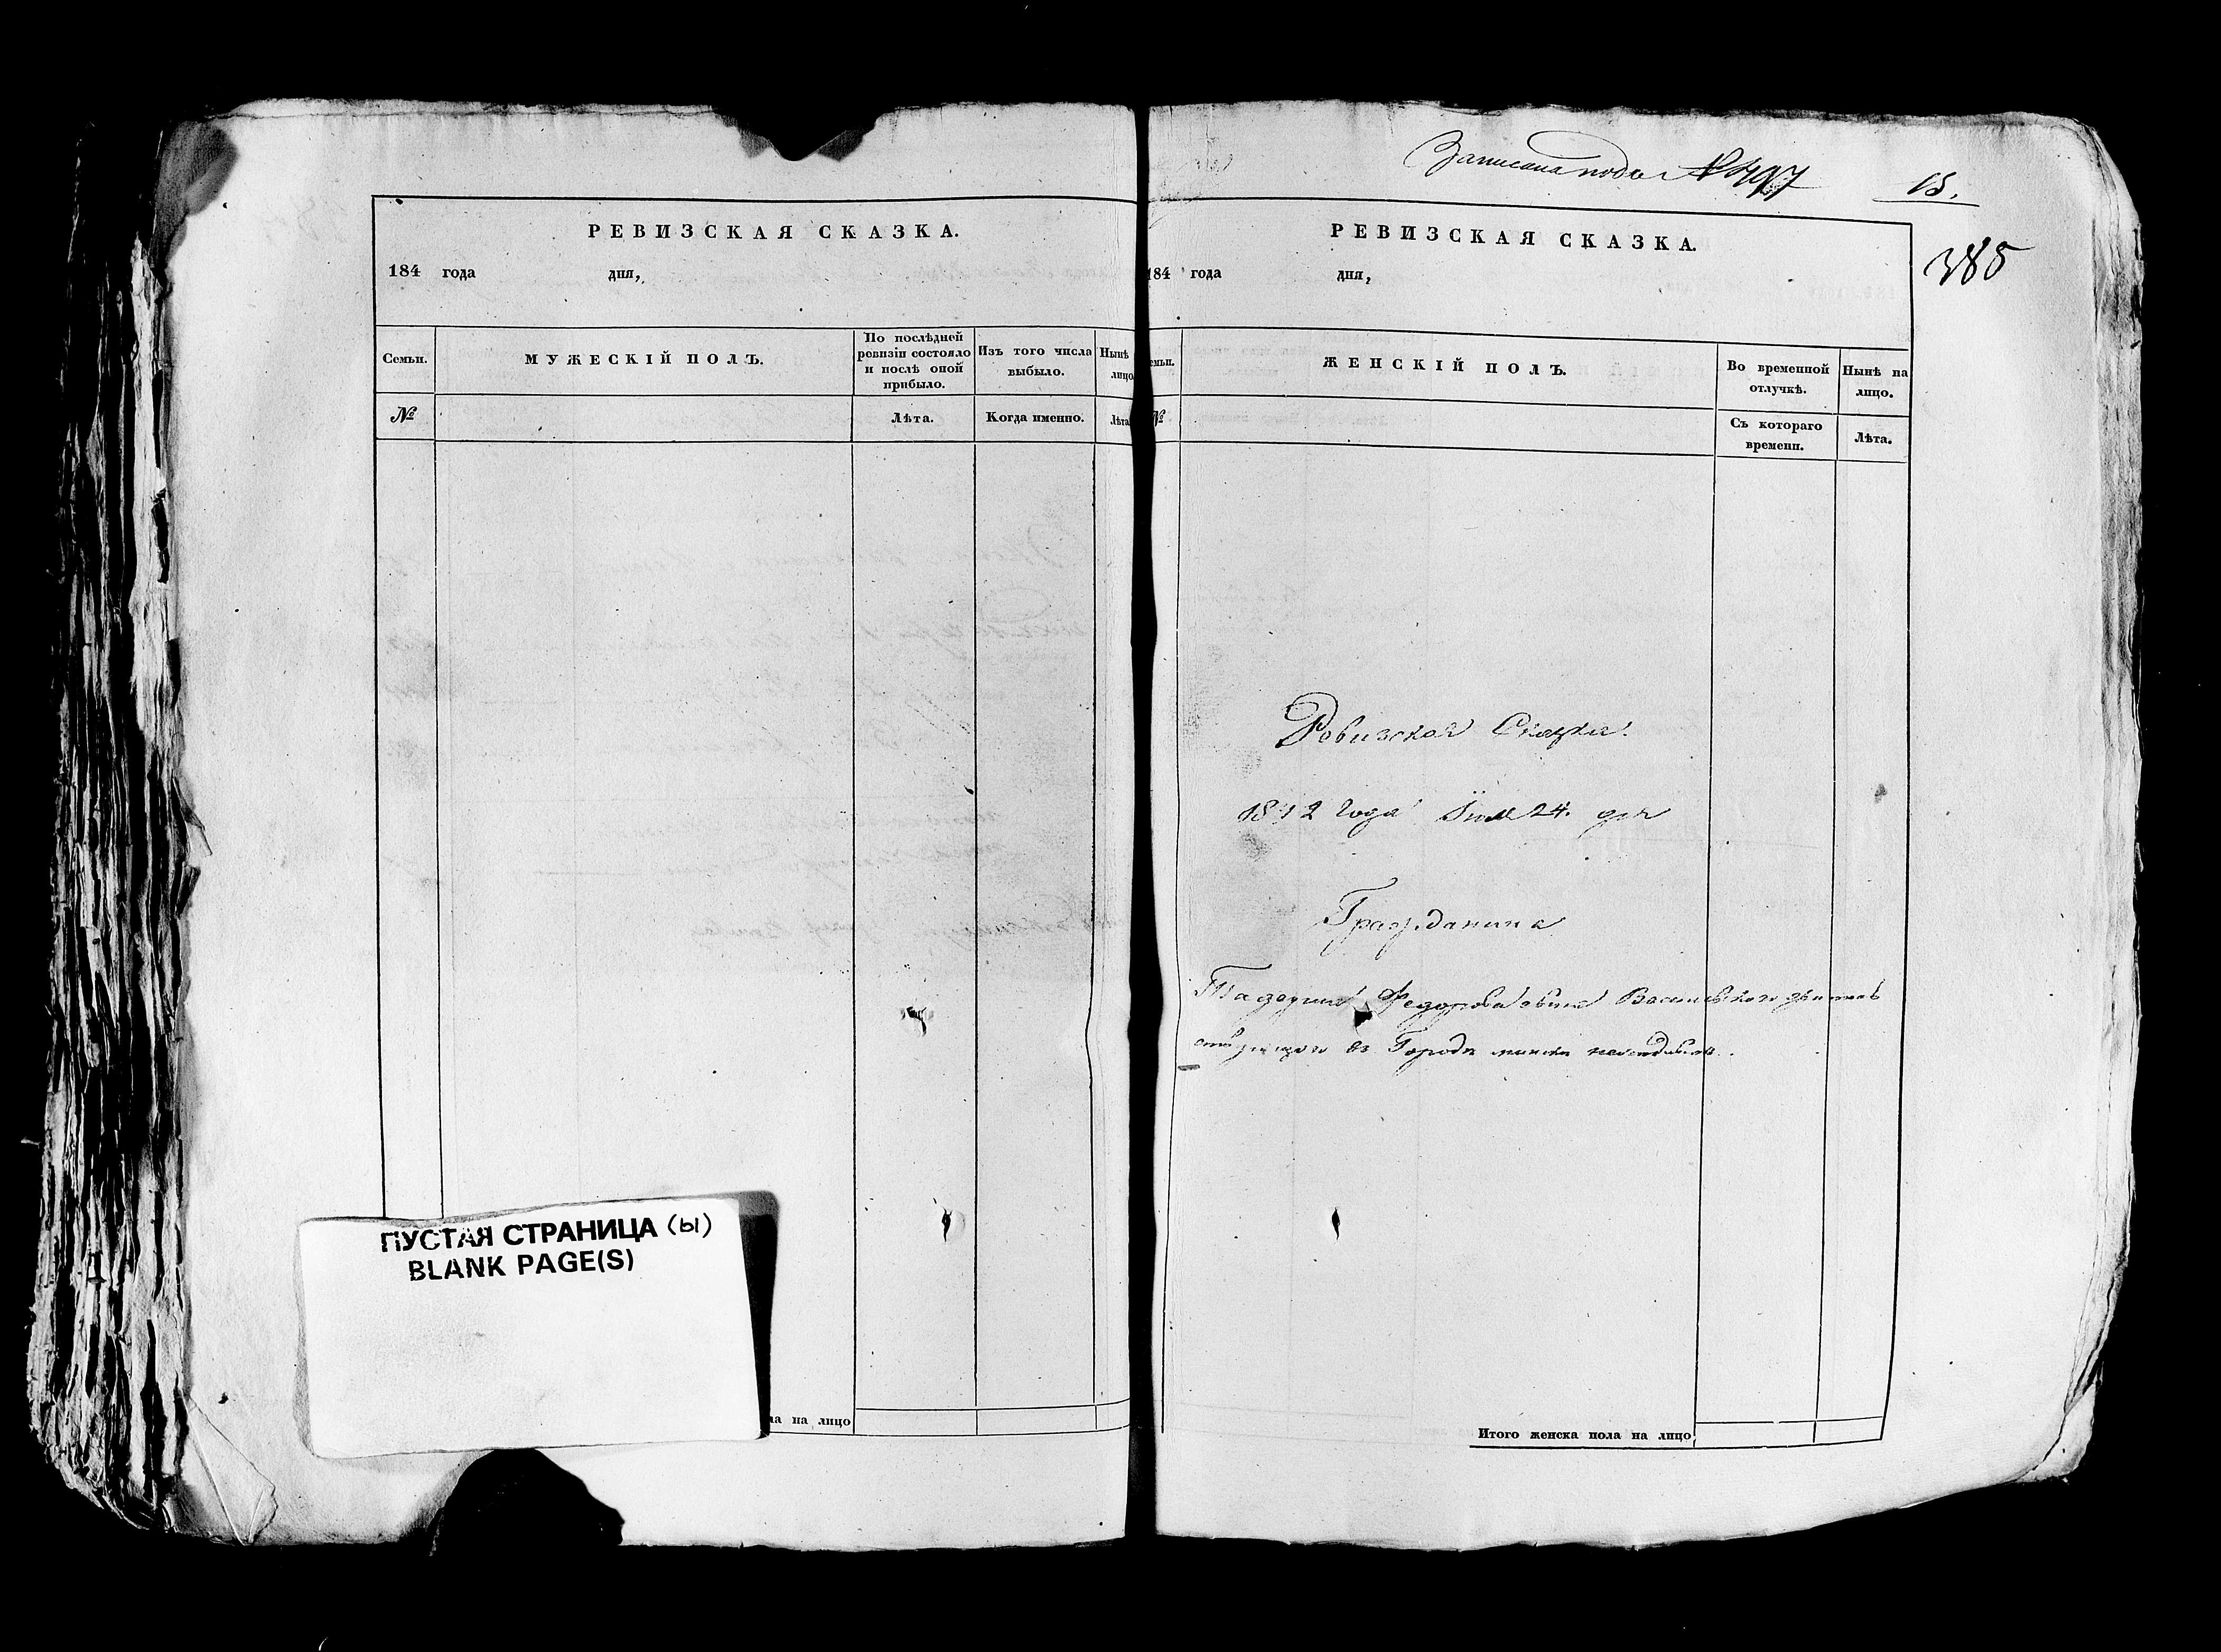 РЕВИЗСКАЯ СКАЗКА.
184 года дня,
Семьи.
МУЖЕСКІЙ ПОЛЪ.
По послѣдней ревизіи состояло и послѣ оной прибыло.
Изъ того числа выбыло.
Нынѣ лицо
№
Лѣта.
Когда именно.
Лѣта
ПУСТАЯ СТРАНИЦА (ы)
BLANK PAGE(S)
ла на лицо
Записана подъ № 497
15.
385
РЕВИЗСКАЯ СКАЗКА.
184 года дня,
емьи.
ЖЕНСКІЙ ПОЛЪ.
Во временной отлучкѣ.
Нынѣ на лицо.
№
Съ котораго времени.
Лѣта.
Ревизская Сказка
1842 года Іюля 24. дня
Гражданина
Тадеуша Василевскаго
въ Городѣ
Итого женска пола на лицо